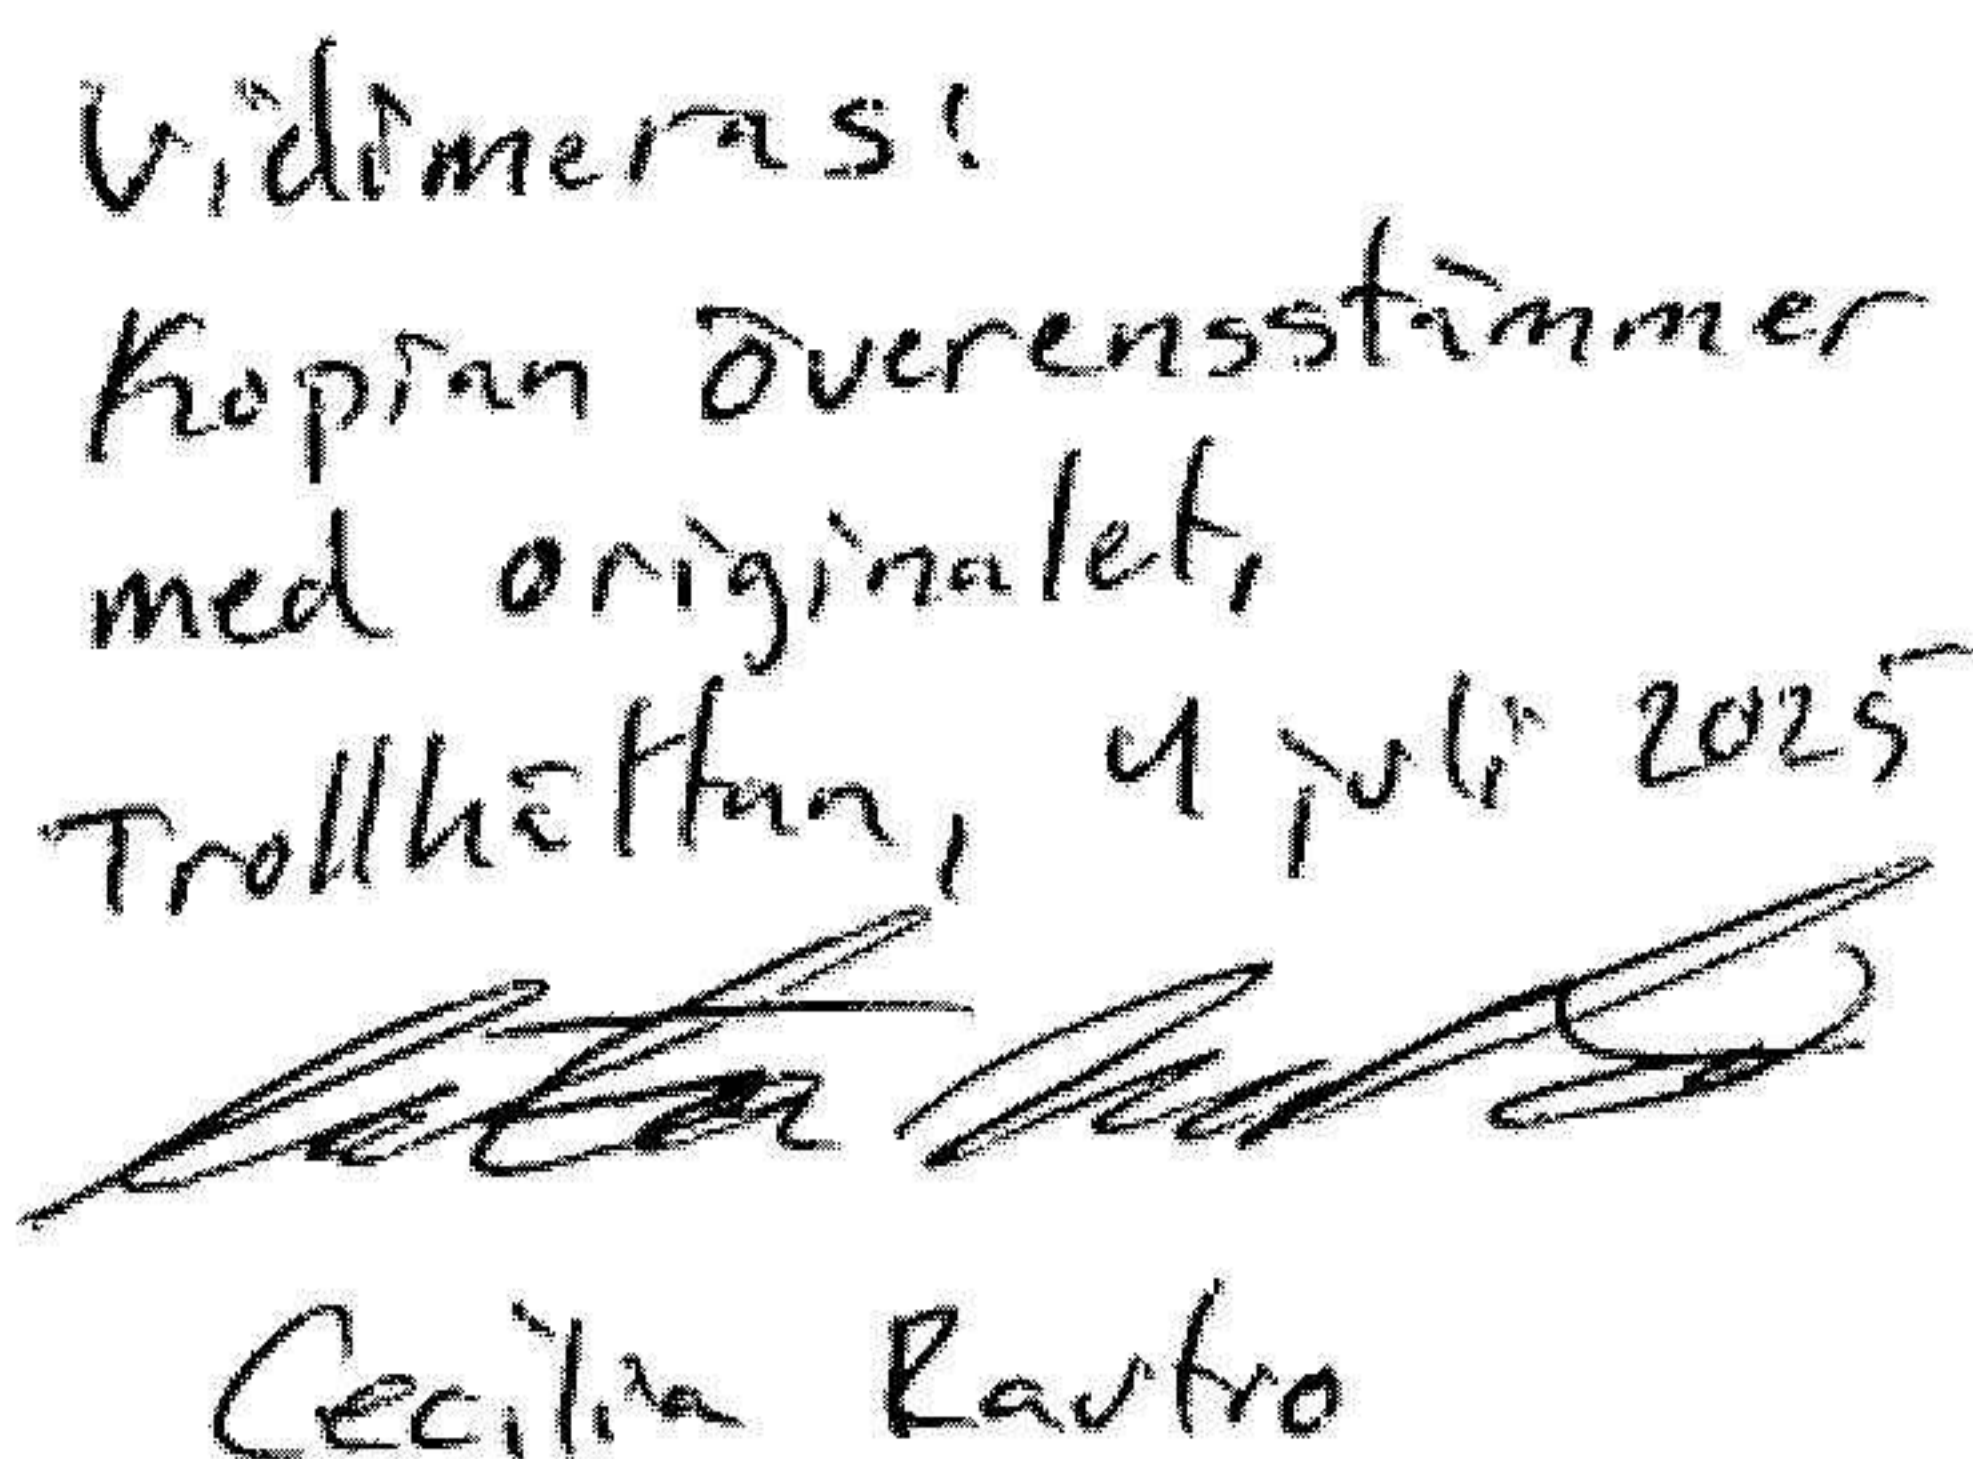 Vidimeras!
Kopian överensstämmer
med originalet,
Trollhättan, 4 juli 2025
Cecilia Rautro